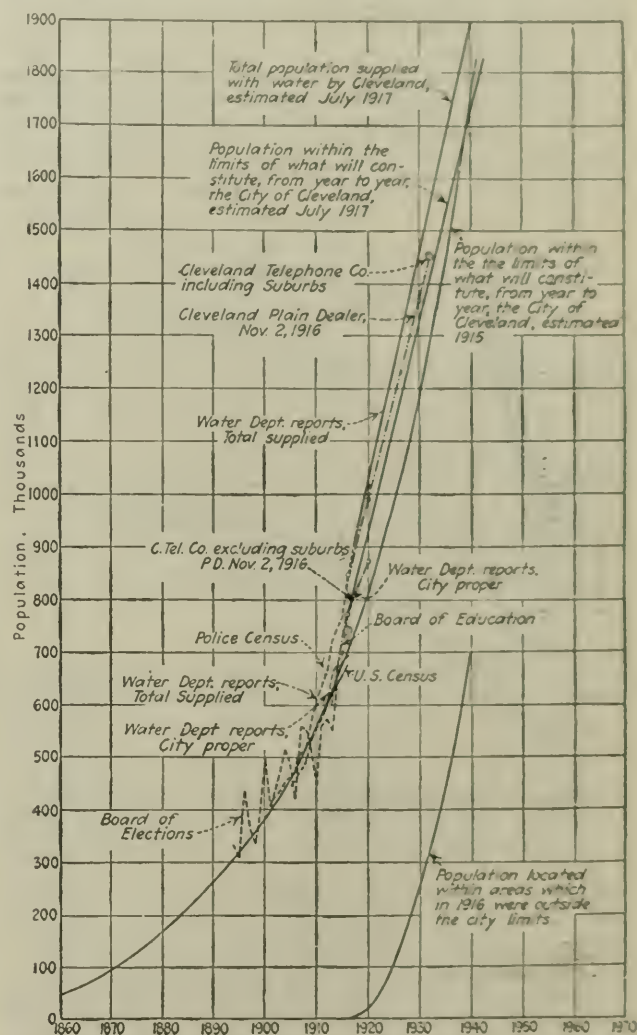 1900
1800
1700
1600
1500
1400
1300
1200
1100
1000
900
800
700
600
500
400
300
200
100
0
Population, Thousands
Total population supplied
with water by Cleveland,
estimated July 1917
Population within the
limits of what will con-
stitute, from year to year,
the City of Cleveland,
estimated July 1917
Cleveland Telephone Co.
including Suburbs
Cleveland Plain Dealer,
Nov. 2, 1916
Population within
the the limits of
what will consti-
tute, from year to
year, the City of
Cleveland, estimated
1915
Water Dept. reports,
Total supplied
C. Tel. Co. excluding suburbs
P.D. Nov. 2, 1916
Water Dept. reports,
City proper
Board of Education
Police Census
U.S. Census
Water Dept. reports,
Total Supplied
Water Dept reports,
City proper
Board of
Elections
Population located
within areas which
in 1916 were outside
the city limits
1860 1870 1880 1890 1900 1910 1920 1930 1940 1950 1960 1970